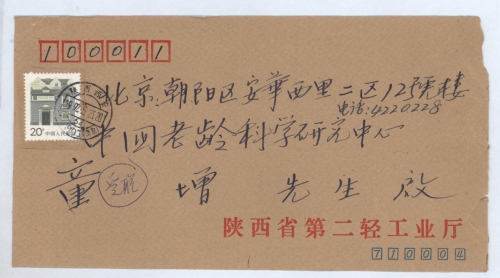 100011
北京朝阳区安华西里二区12號樓
电话:4220228
中国老龄科学研究中心
童增 先生 啟
陕西省第二轻工业厅
710004
20分 中国人民邮政